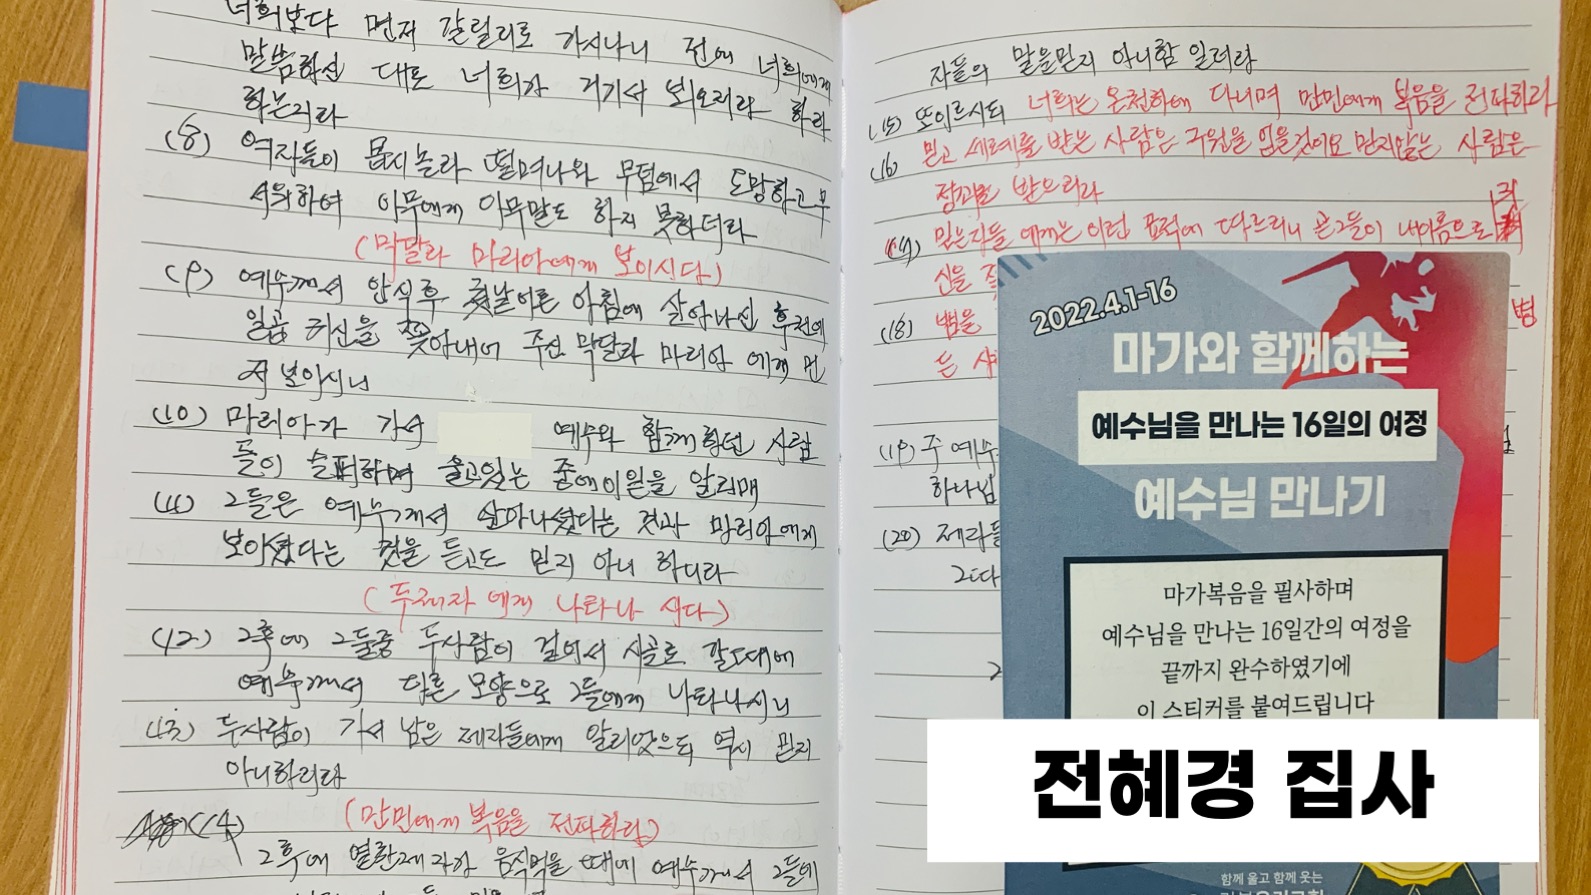 너희보다 먼저 갈릴리로 가시나니 전에 너희에게
말씀하신 대로 너희가 거기서 뵈오리라 하라
하는지라
(8) 여자들이 몹시놀라 떨며나와 무덤에서 도망하고 무
서워하여 아무에게 아무말도 하지 못하더라
(막달라 마리아에게 보이시다)
(9) 예수께서 안식후 첫날이른 아침에 살아나신 후전에
일곱 귀신을 쫓아내어 주신 막달라 마리아 에게 먼
저 보이시니
(10) 마리아가 가서 예수와 함께하던 사람
들이 슬퍼하며 울고있는 중에이일을 알리매
(11) 그들은 예수께서 살아나셨다는 것과 마리아에게
보이셨다는 것을 듣고도 믿지 아니 하니라
(두제자 에게 나타나 시다)
(12) 그후에 그들중 두사람이 걸어서 시골로 갈때에
예수께서 다른 모양으로 그들에게 나타나시니
(13) 두사람이 가서 남은 제자들에게 알리었으되 역시 믿지
아니하니라
(만민에게 복음을 전파하라)
(14)
그후에 열한제자가 음식먹을 때에 예수께서 그들에
자들의 말을믿지 아니함 일러라
(15) 또이르시되 너희는 온천하에 다니며 만민에게 복음을 전파하라
(16) 믿고 세례를 받는 사람은 구원을 얻을것이요 믿지않는 사람은
정죄를 받으리라
믿는자들 에게는 이런 표적이 따르리니 곧그들이 내이름으로 귀
신을
(18) 뱀을 병
든
(19) 주 예수
하나님
(20) 제자들
2022.4.1-16
마가와 함께하는
예수님을 만나는 16일의 여정
예수님 만나기
마가복음을 필사하며
예수님을 만나는 16일간의 여정을
끝까지 완수하였기에
이 스티커를 붙여드립니다
전혜경 집사
함께 울고 함께 웃는